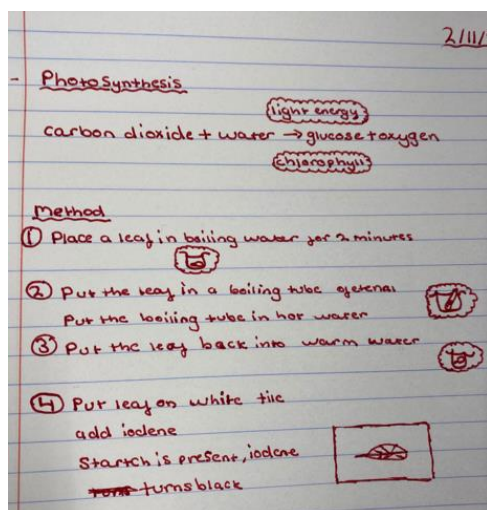 2/11/
- Photosynthesis
light energy
carbon dioxide + water → glucose + oxygen
chlorophyll
Method
① Place a leaf in boiling water for 2 minutes
② Put the leaf in a boiling tube of
Put the boiling tube in hot water
③ Put the leaf back into warm water
④ Put leaf on white tile
add iodene
Startch is present, iodene
turns black